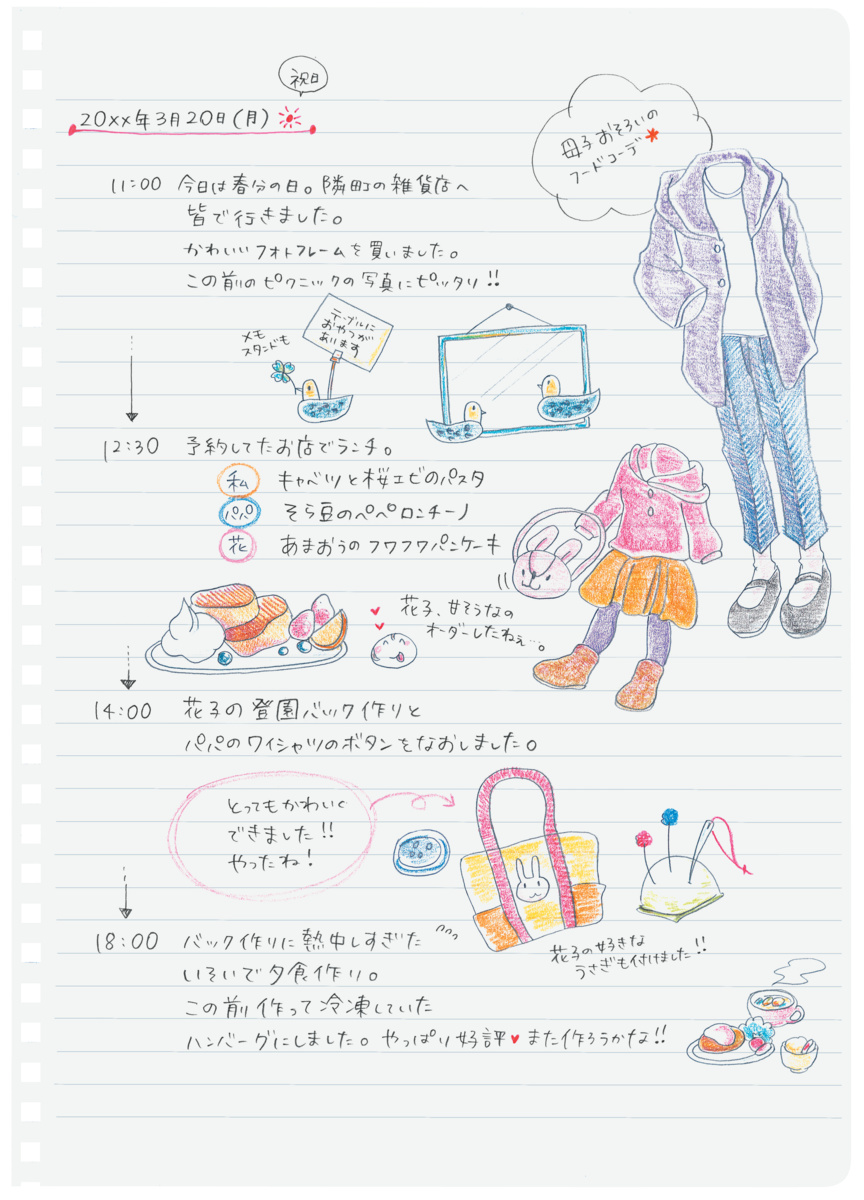 祝日
20××年3月20日(月)
母子おそろいの
フードコーデ*
11:00 今日は春分の日。隣町の雑貨店へ
皆で行きました。
かわいいフォトフレームを買いました。
この前のピクニックの写真にピッタリ!!
メモ
スタンドも
テーブルに
おやつが
あります
12:30 予約してたお店でランチ。
私 キャベツと桜エビのパスタ
パパ そら豆のペペロンチーノ
花 あまおうのフワフワパンケーキ
花子、甘そうなの
オーダーしたねぇ…。
14:00 花子の登園バック作りと
パパのワイシャツのボタンをなおしました。
とってもかわいく
できました!!
やったね!
18:00 バック作りに熱中しすぎた
いそいで夕食作り。
この前作って冷凍していた
ハンバーグにしました。やっぱり好評♥また作ろうかな!!
花子の好きな
うさぎも付けました!!